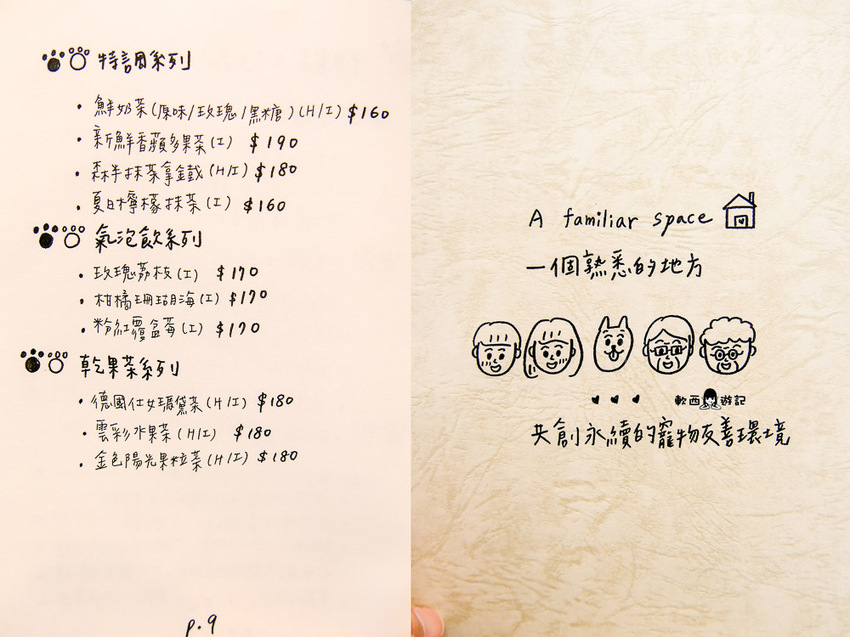 特調系列
・鮮奶茶(原味/玫瑰/黑糖)(H/I) $160
・新鮮香蘋多果茶(I) $190
・森半抹茶拿鐵(H/I) $180
・夏日檸檬抹茶(I) $160
氣泡飲系列
・玫瑰荔枝(I) $170
・柑橘珊瑚海(I) $170
・粉紅覆盆莓(I) $170
乾果茶系列
・德國仕女瑪黛茶(H/I) $180
・雲彩水果茶(H/I) $180
・金色陽光果粒茶(H/I) $180
p.9
A familiar space
一個熟悉的地方
軟西遊記
共創永續的寵物友善環境